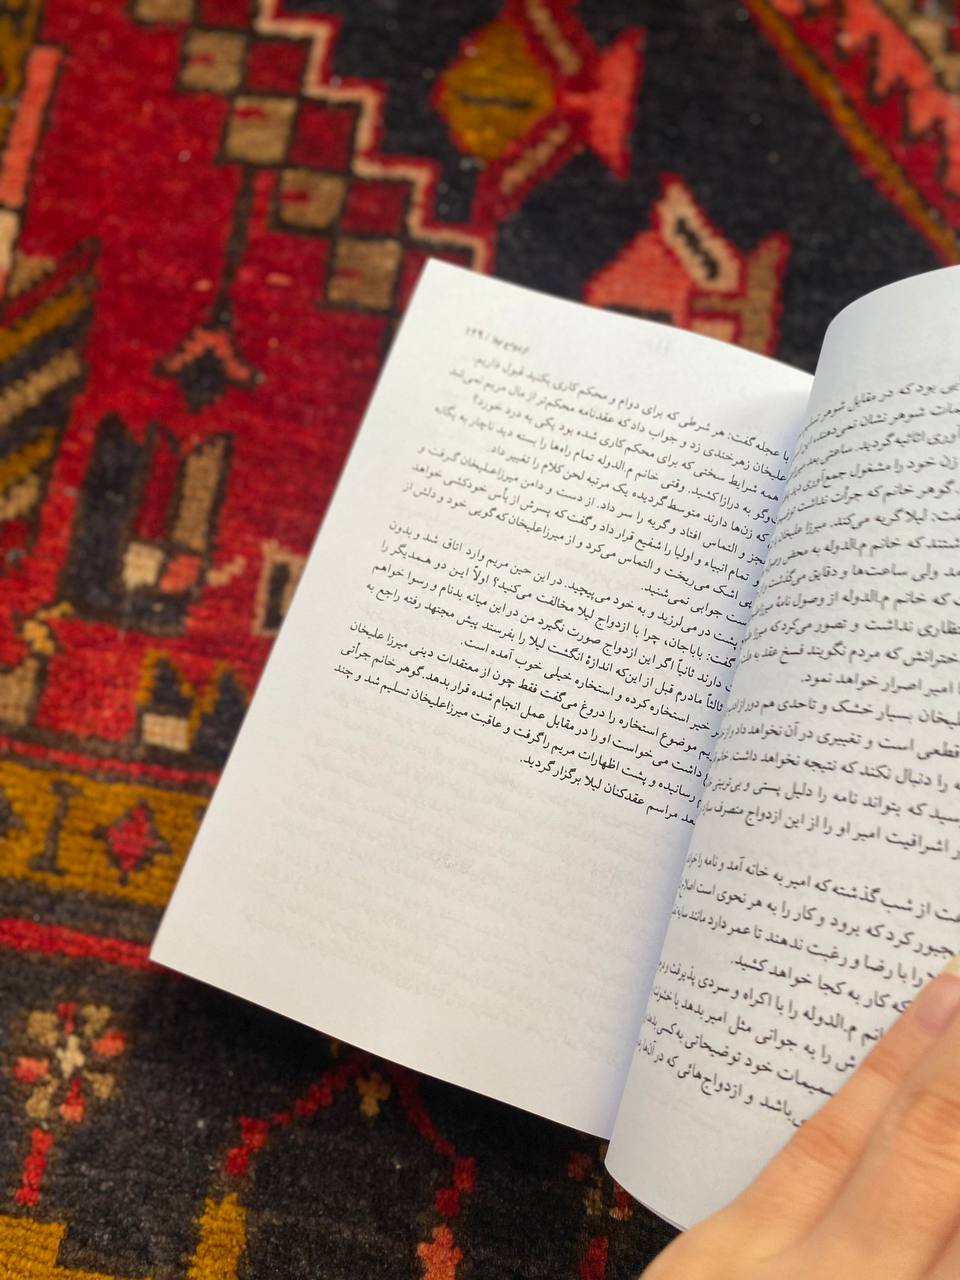 یی بود که در مقابل شوهر
جات شوهر نشان نمی‌دهند
آوری اثاثیه گردید. ساعتی بعد
زن خود را مشغول جمع‌آوری دید
گوهر خانم که جرأت نداشت
فت: لیلا گریه می‌کند. میرزا علیخان
شتند که خانم م.الدوله به محض
مد ولی ساعت‌ها و دقایق می‌گذشت
که خانم م.الدوله از وصول نامهٔ
تظاری نداشت و تصور می‌کرد که میرزا
خترانش که مردم نگویند فسخ عقد به
با امیر اصرار خواهد نمود.
لیخان بسیار خشک و تاحدی هم دور از
قطعی است و تغییری در آن نخواهد داد و
ه را دنبال نکند که نتیجه نخواهد داشت.
سید که بتواند نامه را دلیل پستی و بی‌تربیتی
ر اشرافیت امیر او را از این ازدواج منصرف
ت از شب گذشته که امیر به خانه آمد و نامه را
جبور کرد که برود و کار را به هر نحوی است
را با رضا و رغبت ندهند تا عمر دارد مانند سایه
که کار به کجا خواهد کشید.
انم م.الدوله را با اکراه و سردی پذیرفت و
ش را به جوانی مثل امیر بدهد یا
صمیمات خود توضیحاتی به کسی بدهد
ی‌باشد و ازدواج‌هائی که در آن‌ها
/ ۲۴۹
با عجله گفت: هر شرطی که برای دوام و محکم کاری بکنید قبول داریم.
علیخان زهرخندی زد و جواب داد که عقدنامه محکم‌تر از مال مریم نمی‌شد
همه شرایط سختی که برای محکم کاری شده بود یکی به درد خورد؟
وگو به درازا کشید. وقتی خانم م.الدوله تمام راه‌ها را بسته دید ناچار به یگانه
که زن‌ها دارند متوسل گردیده یک مرتبه لحن کلام را تغییر داد.
جز و التماس افتاد و گریه را سر داد. از دست و دامن میرزا علیخان گرفت و
و تمام انبیاء و اولیا را شفیع قرار داد و گفت که پسرش از یأس خودکشی خواهد
اشک می‌ریخت و التماس می‌کرد و از میرزا علیخان که گویی خود و دلش از
ست جوابی نمی‌شنید.
پشت در می‌لرزید و به خود می‌پیچید. در این حین مریم وارد اتاق شد و بدون
گفت: باباجان، چرا با ازدواج لیلا مخالفت می‌کنید؟ اولاً این دو همدیگر را
دارند ثانیاً اگر این ازدواج صورت نگیرد من در این میانه بدنام و رسوا خواهم
ثالثاً مادرم قبل از این‌که اندازهٔ انگشت لیلا را بفرستد پیش مجتهد رفته راجع به
خیر استخاره کرده و استخاره خیلی خوب آمده است.
یم موضوع استخاره را دروغ می‌گفت فقط چون از معتقدات دینی میرزا علیخان
داشت می‌خواست او را در مقابل عمل انجام شده قرار بدهد. گوهر خانم جرأتی
رسانیده و پشت اظهارات مریم را گرفت و عاقبت میرزا علیخان تسلیم شد و چند
بعد مراسم عقدکنان لیلا برگزار گردید.